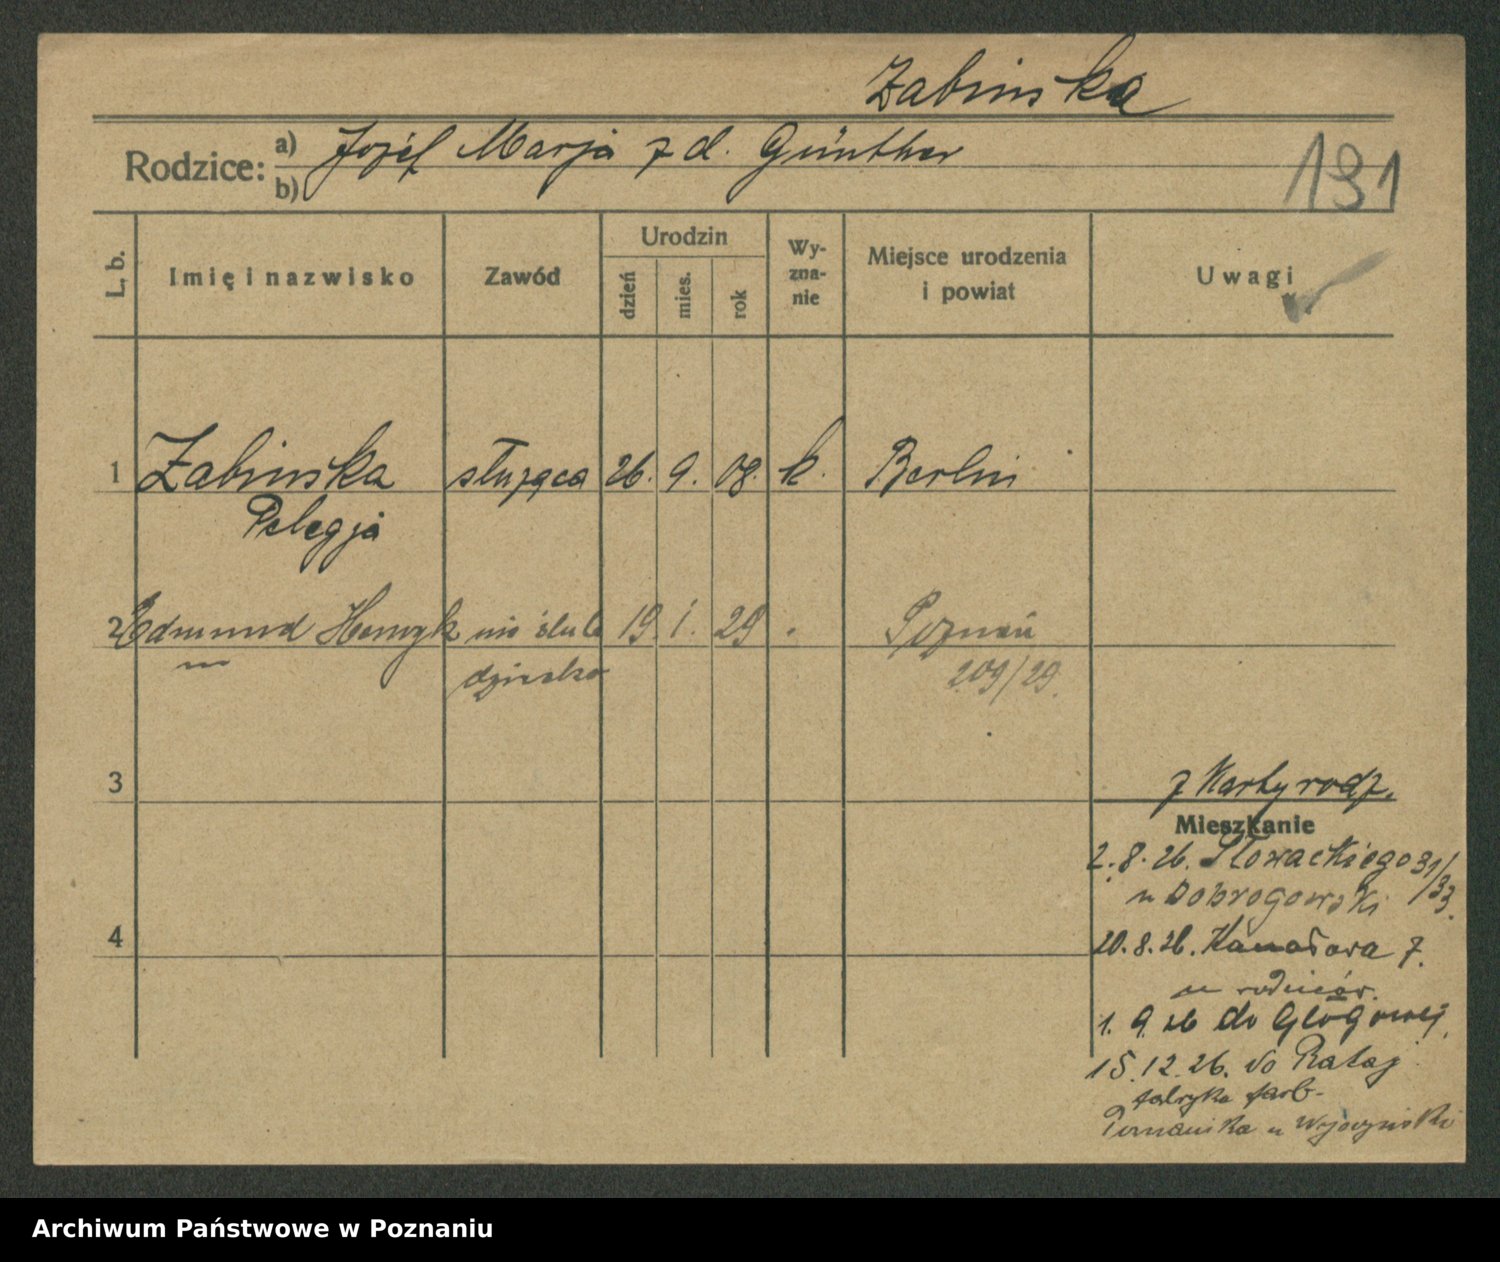 Żabinska
Rodzice: a) Józef Marja z d. Günther
b)
191
L. b.
Imię i nazwisko
Zawód
Urodzin
dzień
mies.
rok
Wy-
zna-
nie
Miejsce urodzenia
i powiat
Uwagi
1 Żabinska służąca 26. 9. 08. k. Berlin
Pelagja
2 Edmund Henryk nie ślub 19. 1. 29 Poznań
dziecko 209/29.
3
z Karty rodz.
Mieszkanie
2. 8. 26. Słowackiego 31/33.
u Dobrogowski
4
20. 8. 26. Kanałowa 7.
u rodziców.
1. 9. 26 do Głogowej
15. 12. 26. do Rataj
fabryka farb